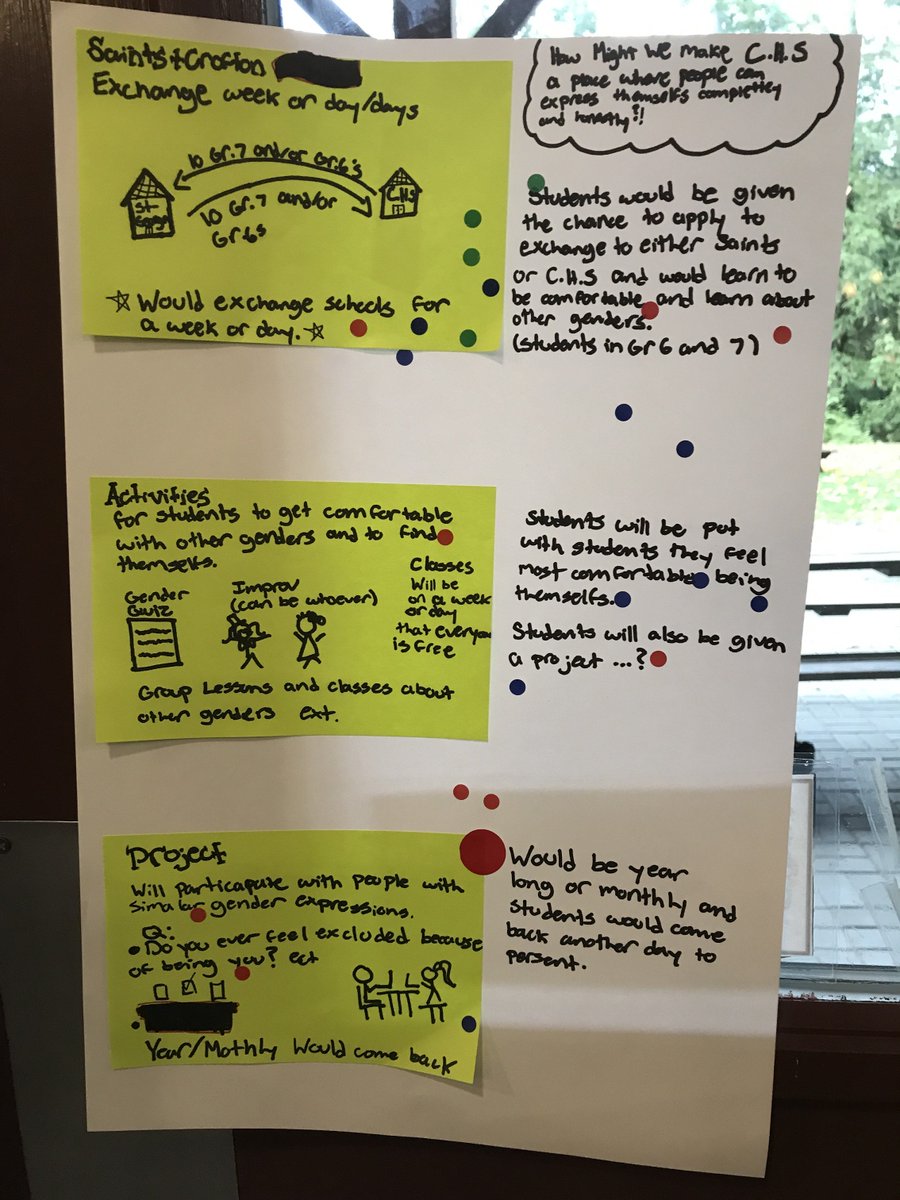 Saints + Crofton
Exchange week or day/days
10 Gr.7 and/or Gr.6's
10 Gr.7 and/or
Gr.6s
St
C.H.S
☆ Would exchange schools for
a week or day. ☆
How Might We make C.H.S
a place where people can
express themselfs completley
and honestly?!
Students would be given
the chance to apply to
exchange to either Saints
or C.H.S and would learn to
be comfortable and learn about
other genders.
(students in Gr 6 and 7)
Activities
for students to get comfortable
with other genders and to find
themselfs.
Gender
Quiz
Improv
(can be whoever)
Classes
Will be
on a week
or day
that everyone
is free
Group Lessons and classes about
other genders ext.
Students will be put
with students they feel
most comfortable being
themselfs.
Students will also be given
a project ...?
Project
Will particapate with people with
simalar gender expressions.
Q:
• Do you ever feel excluded because
of being you? ect
Year/Mothly Would come back
Would be year
long or monthly and
students would come
back another day to
persent.